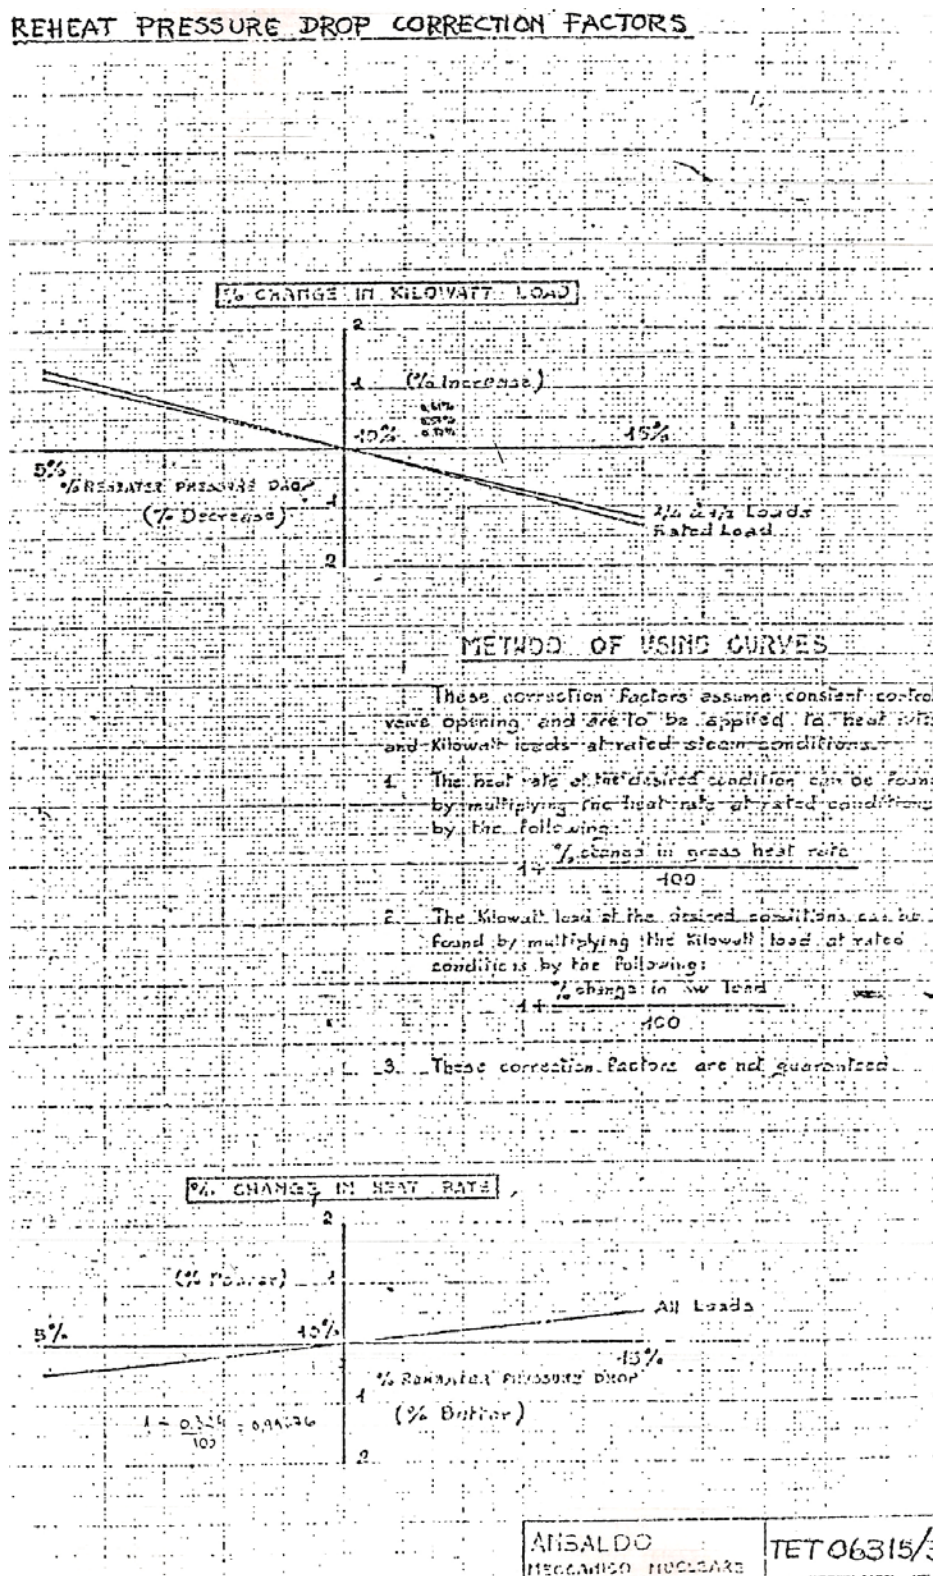 REHEAT PRESSURE DROP CORRECTION FACTORS
% CHANGE IN KILOWATT LOAD
2
1 (% Increase)
10% 15%
5%
% REHEATER PRESSURE DROP 1
(% Decrease)
Loads
Rated Load
2
METHOD OF USING CURVES
These correction factors assume constant
opening and are to be applied to heat
and Kilowatt loads at rated steam conditions.
1. The heat rate at the desired condition can be
by multiplying the heat rate at rated conditions
by the following:
1+ % change in gross heat rate
100
2. The Kilowatt load at the desired conditions can be
found by multiplying the Kilowatt load at rated
conditions by the following:
1+ % change in kw load
100
3. These correction factors are not guaranteed
% CHANGE IN HEAT RATE
2
1
All Loads
5% 10%
15%
% REHEATER PRESSURE DROP
1
(% Better)
100
2
ANSALDO TET 06315/3
MECCANICO NUCLEARE